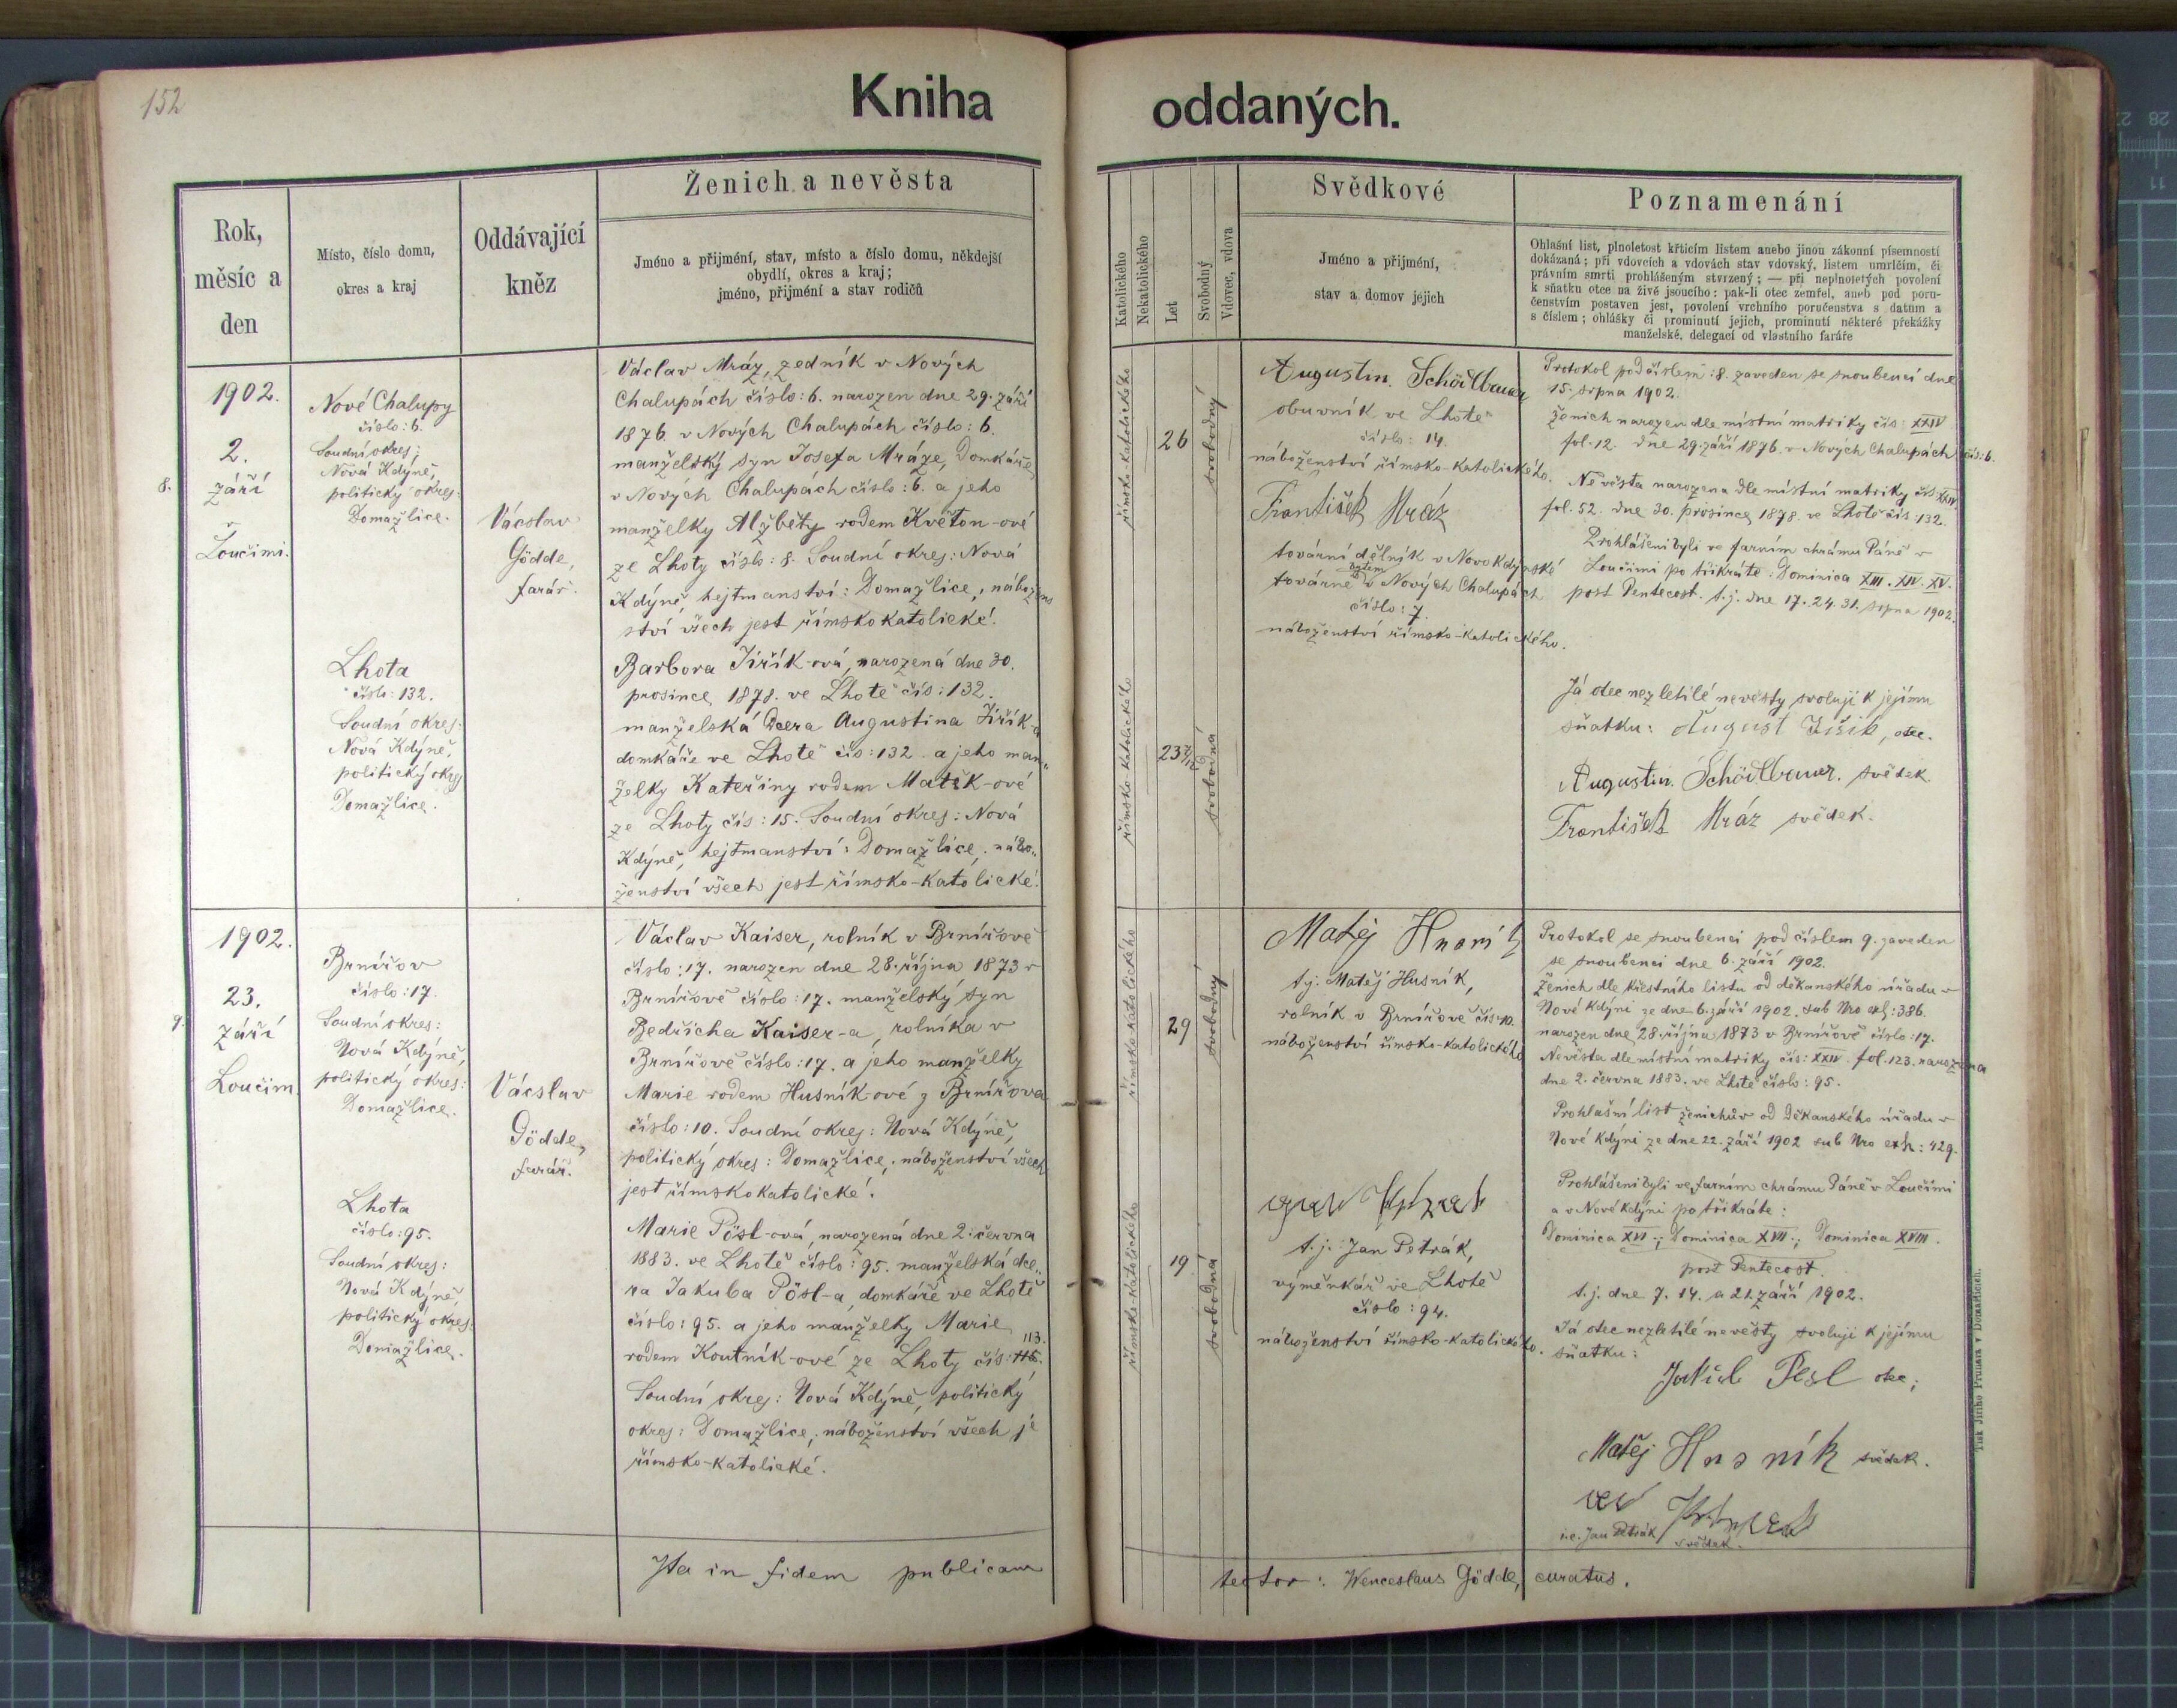 152
Kniha oddaných.
Rok,
měsíc a
den
Místo, číslo domu,
okres a kraj
Oddávající
kněz
Ženich a nevěsta
Jméno a přijmení, stav, místo a číslo domu, někdejší
obydlí, okres a kraj;
jméno, přijmení a stav rodičů
Katolického
Nekatolického
Let
Svobodný
Vdovec, vdova
Svědkové
Jméno a přijmení,
stav a domov jejich
Poznamenání
Ohlašní list, plnoletost křticím listem anebo jinou zákonní písemností
dokázaná; při vdovcích a vdovách stav vdovský, listem umrlčím, či
právním smrti prohlášeným stvrzený; — při neplnoletých povolení
k sňatku otce na živě jsoucího: pak-li otec zemřel, aneb pod poru-
čenstvím postaven jest, povolení vrchního poručenstva s datum a
s číslem; ohlášky či prominutí jejich, prominutí některé překážky
manželské, delegací od vlastního faráře
8.
1902.
2.
září
v
Loučimi.
Nové Chalupy
číslo: 6.
Soudní okres:
Nová Kdýně,
politický okres:
Domažlice.
Vácslav
Gödde,
farář.
Václav Mráz, zedník v Nových
Chalupách číslo: 6. narozen dne 29. září
1876. v Nových Chalupách číslo: 6.
manželský syn Josefa Mráze, Domkáře
v Nových Chalupách číslo: 6. a jeho
manželky Alžběty rodem Květon-ové
ze Lhoty číslo: 8. Soudní okres: Nová
Kdýně, hejtmanství: Domažlice, nábožen
ství všech jest římskokatolické.
Lhota
číslo: 132.
Soudní okres:
Nová Kdýně,
politický okres
Domažlice.
Barbora Jiřík-ová, narozená dne 30.
prosince 1878. ve Lhotě čís: 132.
manželská dcera Augustina Jiřík-a
domkáře ve Lhotě čís: 132. a jeho man„
želky Kateřiny rodem Matěk-ové
ze Lhoty čís: 15. Soudní okres: Nová
Kdýně, hejtmanství: Domažlice, nábo„
ženství všech jest římsko-katolické.
římsko-katolického
26
svobodný
římsko-katolického
23
svobodná
Augustin. Schödlbauer
obuvník ve Lhotě
číslo: 14.
náboženství římsko-katolického.
František Mráz
tovární dělník v Novokdýnské
továrně bytem v Nových Chalupách
číslo: 7.
náboženství římsko-katolického.
Protokol pod číslem: 8. zaveden se snoubenci dne
15. srpna 1902.
ženich narozen dle místní matriky čís: XXIV
fol. 12. dne 29. září 1876. v Nových Chalupách čís: 6.
Nevěsta narozena dle místní matriky čís XXIV.
fol. 52. dne 30. prosince 1878. ve Lhotě čís: 132.
Prohlášeni byli ve farním chrámu Páně v
Loučimi po třikráte: Dominica XIII. XIV. XV.
post Pentecost. t. j. dne 17. 24. 31. srpna 1902.
Já otec nezletilé nevěsty svoluji k jejímu
sňatku: August Jiřík, otec.
Augustin. Schödlbauer. svědek
František Mráz svědek.
9.
1902.
23.
září
Loučim.
Brnířov
číslo: 17.
Soudní okres:
Nová Kdýně,
politický okres:
Domažlice.
Vácslav
Gödde,
farář.
Václav Kaiser, rolník v Brnířově
číslo: 17. narozen dne 28. října 1873 v
Brnířově číslo: 17. manželský syn
Bedřicha Kaiser-a, rolníka v
Brnířově číslo: 17. a jeho manželky
Marie rodem Husník-ové z Brnířova
číslo: 10. Soudní okres: Nová Kdýně,
politický okres: Domažlice, náboženství všech
jest římskokatolické.
Lhota
číslo: 95.
Soudní okres:
Nová Kdýně,
politický okres:
Domažlice.
Marie Pösl-ová, narozená dne 2. června
1883. ve Lhotě číslo: 95. manželská dce„
ra Jakuba Pösl-a, domkáře ve Lhotě
číslo: 95. a jeho manželky Marie
rodem Koutník-ové ze Lhoty čís: 115. 113.
Soudní okres: Nová Kdýně, politický
okres: Domažlice, náboženství všech je
římsko-katolické.
římsko-katolického
29
svobodný
římsko-katolického
19
svobodná
Matěj
t. j. Matěj Husník,
rolník v Brnířově čís: 10.
náboženství římsko-katolického
t. j. Jan Petrák,
výměnkář ve Lhotě
číslo: 94.
náboženství římsko-katolického.
Protokol se snoubenci pod číslem 9. zaveden
se snoubenci dne 6. září 1902.
Ženich dle křestního listu od děkanského úřadu v
Nové Kdýni ze dne 6. září 1902. sub Nro exh: 386.
narozen dne 28. října 1873 v Brnířově číslo: 17.
Nevěsta dle místní matriky čís: XXIV. fol. 123. narozena
dne 2. června 1883. ve Lhotě číslo: 95.
Prohlašní list ženichův od Děkanského úřadu v
Nové Kdýni ze dne 22. září 1902 sub Nro exh: 429.
Prohlášeni byli ve farním chrámu Páně v Loučimi
a v Nové Kdýni po třikráte:
Dominica XVI.; Dominica XVII.; Dominica XVIII.
post Pentecost.
t. j. dne 7. 14. a 21. září 1902.
Já otec nezletilé nevěsty svoluji k jejímu
sňatku:
Jakub Pesl otec;
Matěj Husník svědek.
i. e. Jan Petrák
svědek.
Ita in fidem publicam
testor: Wenceslaus Gödde, curatus.
Tisk Jiřího Prunara v Domažlicích.